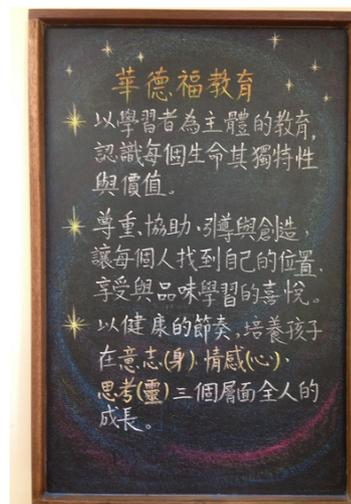 華德福教育
以學習者為主體的教育,
認識每個生命其獨特性
與價值。
尊重、協助、引導與創造,
讓每個人找到自己的位置、
享受與品味學習的喜悅。
以健康的節奏,培養孩子
在意志(身)、情感(心)、
思考(靈)三個層面全人的
成長。